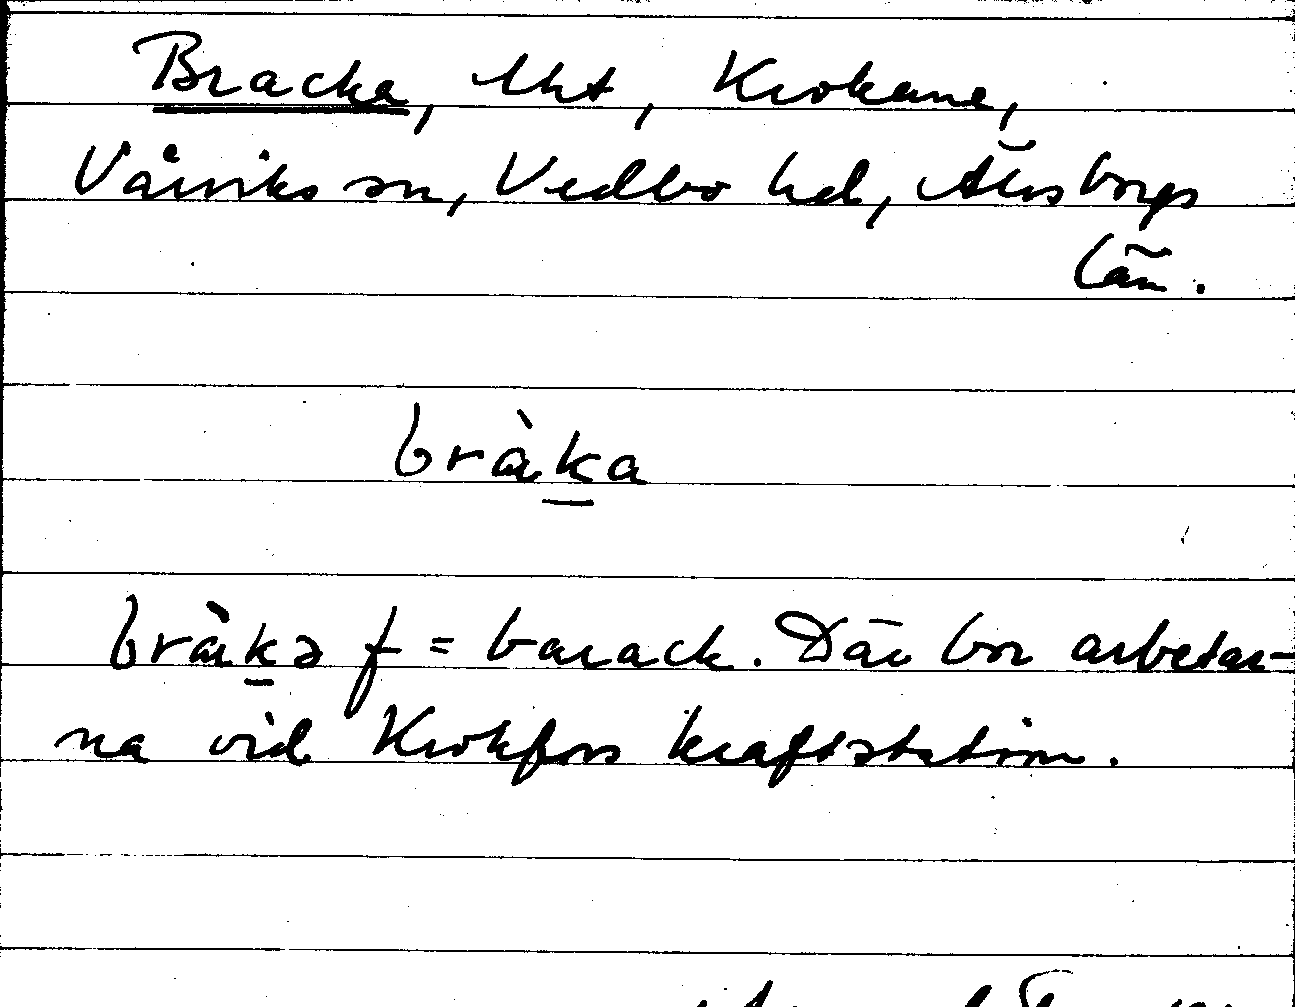 Bracka, lht, Krokane,
Vårviks sn, Vedbo hd, Älvsborgs
län.
bràka
bràkə f = barack. Där bor arbetar-
na vid Krokfors kraftstation.